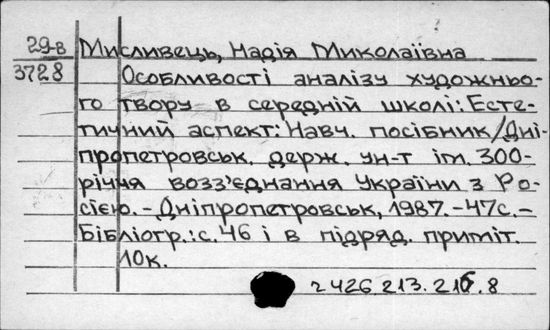 29-в Мисливець, Надія Миколаївна
3728 Особливості аналізу художньо-
го твору в середній школі: Есте-
тичний аспект: Навч. посібник/Дні-
пропетровськ. держ. ун-т ім. 300-
річчя возз'єднання України з Ро-
сією. - Дніпропетровськ, 1987. - 47с. -
Бібліогр.: с. 46 і в підряд. приміт.
10к.
ч 426.213.216.8